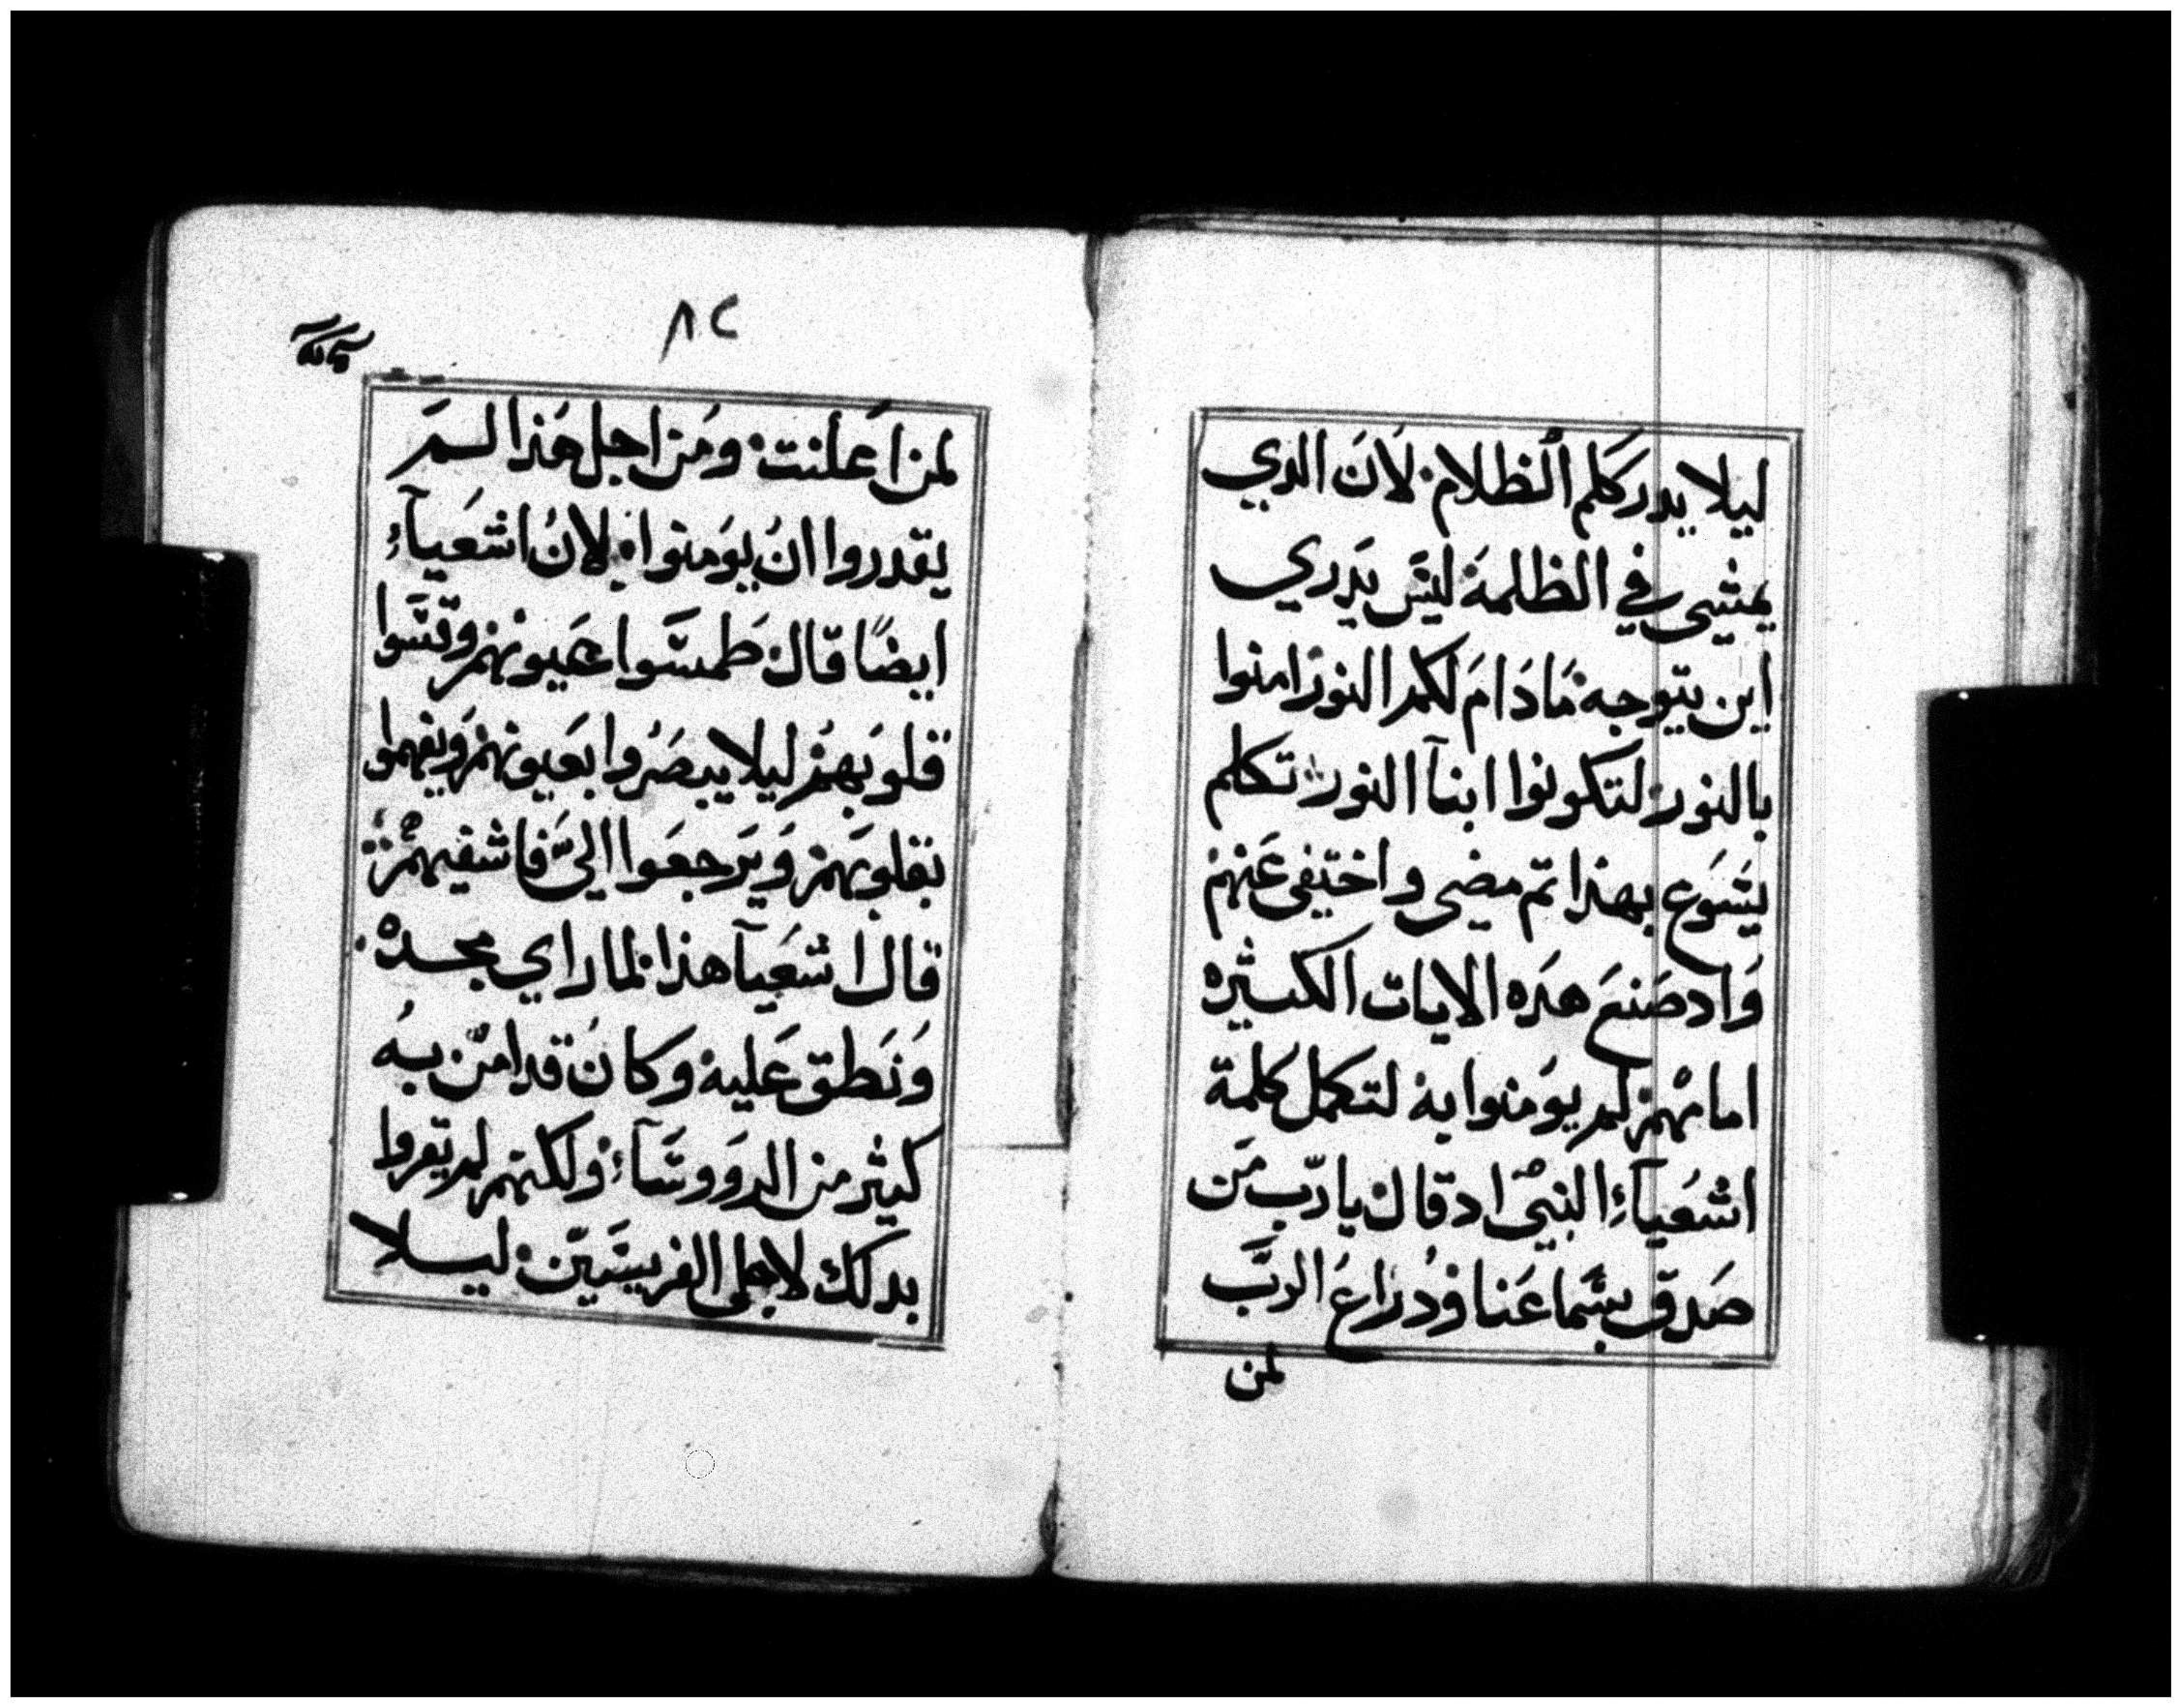 ليلا يدرككم الظلام. لان الدي
يمشي في الظلمة ليس يدري
اين يتوجه مادام لكم النور امنوا
بالنور لتكونوا ابنآ النور تكلم
يسوع بهذا تم مضي واختفي عنهم
واد صنع هده الايات الكثيره
امامهم لم يومنوا به لتكمل كلمة
اشعيآء النبي اد قال يا رب من
صدق بسماعنا ودراع الرب
لمن
٨٢
لمن اعلنت. ومن اجل هذا لم
يقدروا ان يومنوا. لان اشعيآء
ايضًا قال طمسوا عيونهم وقسوا
قلوبهم ليلا يبصروا بعيونهم ويفهموا
بقلوبهم ويرجعوا اليّ فاشفيهم
قال اشعيآ هذا لما راي مجده.
ونطق عليه وكان قد امن به
كثير من الرووسآء ولكنهم لم يقروا
بدلك لاجل الفريسيين ليلا